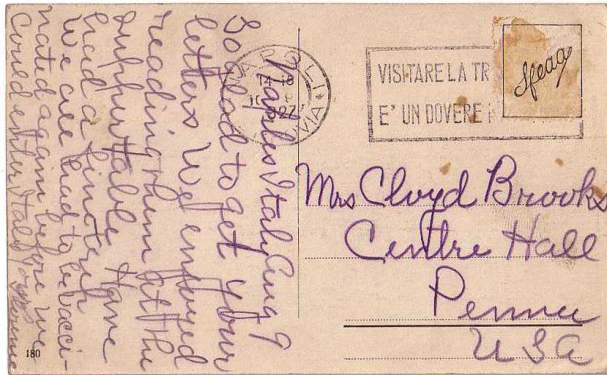 Naples Italy Aug 9
So glad to get your
letters We enjoyed
reading them at the
supper table Have
had a fine trip
We are had to be vacci-
nated again before we
could enter Italy
180
NAPOLI
VIA
VISITARE LA TR
E' UN DOVERE
Mrs Cloyd Brooks
Centre Hall
Penna
USA